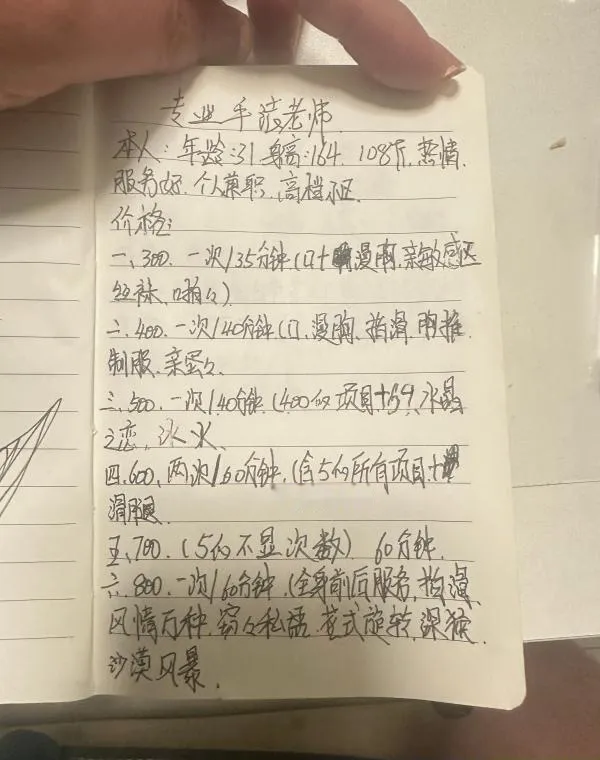 专业手法老师
本人:年龄:31 身高:164. 108斤,热情.
服务好.个人兼职,高档小区.
价格:
一、300.一次/35分钟(口+漫胸.亲敏感区
丝袜、啪々)
二.400.一次/40分钟(口、漫胸、指滑.胸推
制服、亲蛋々.
三、500.一次/40分钟(400的项目+69.水晶
之恋,冰火、
四.600、两次/60分钟.(含5的所有项目+
滑腿.
五、700.(5的不显次数) 60分钟.
六、800.一次/60分钟(全身前后服务,指滑
风情万种.窃々私语.花式旋转,深猴.
沙漠风暴.